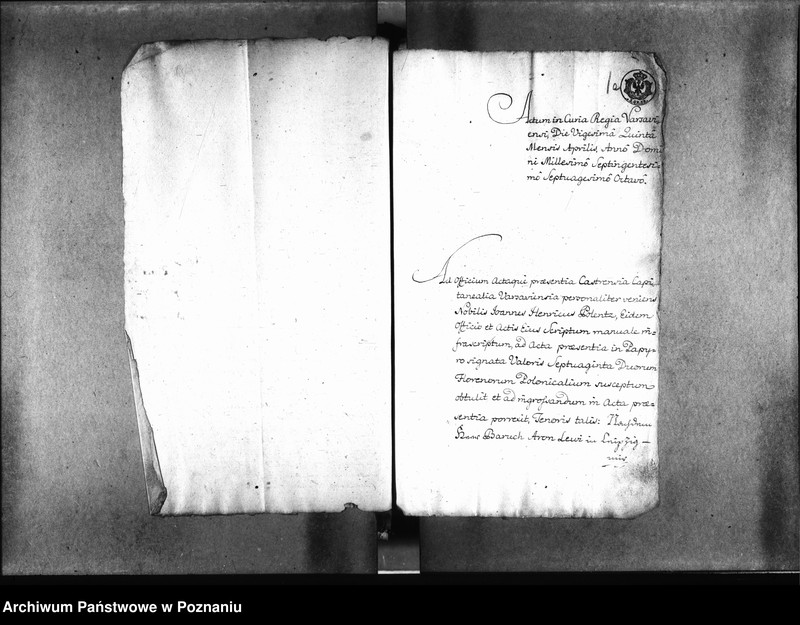 Actum in Curia Regia Varsavi-
ensi, Die Vigesimâ Quintâ
Mensis Aprilis, Annô Domi
ni Millesimô Septingentesi-
mô Septuagesimô Octavô.
Ad Officium Actaquè præsentia Castrensia Capi-
tanealia Varsaviensia personaliter veniens
Nobilis Ioannes Henricus Polentz, Eidem
Officio et Actis Eius Scriptum manuale in-
frascriptum, ad Acta præsentia in Papy-
ro signata Valoris Septuaginta Duorum
Florenorum Polonicalium susceptum
obtulit et ad ingrossandum in Acta præ-
sentia porrexit, Tenoris talis: Nachdem
Baruch Aron Lewi in Leipzig
mir
Archiwum Państwowe w Poznaniu